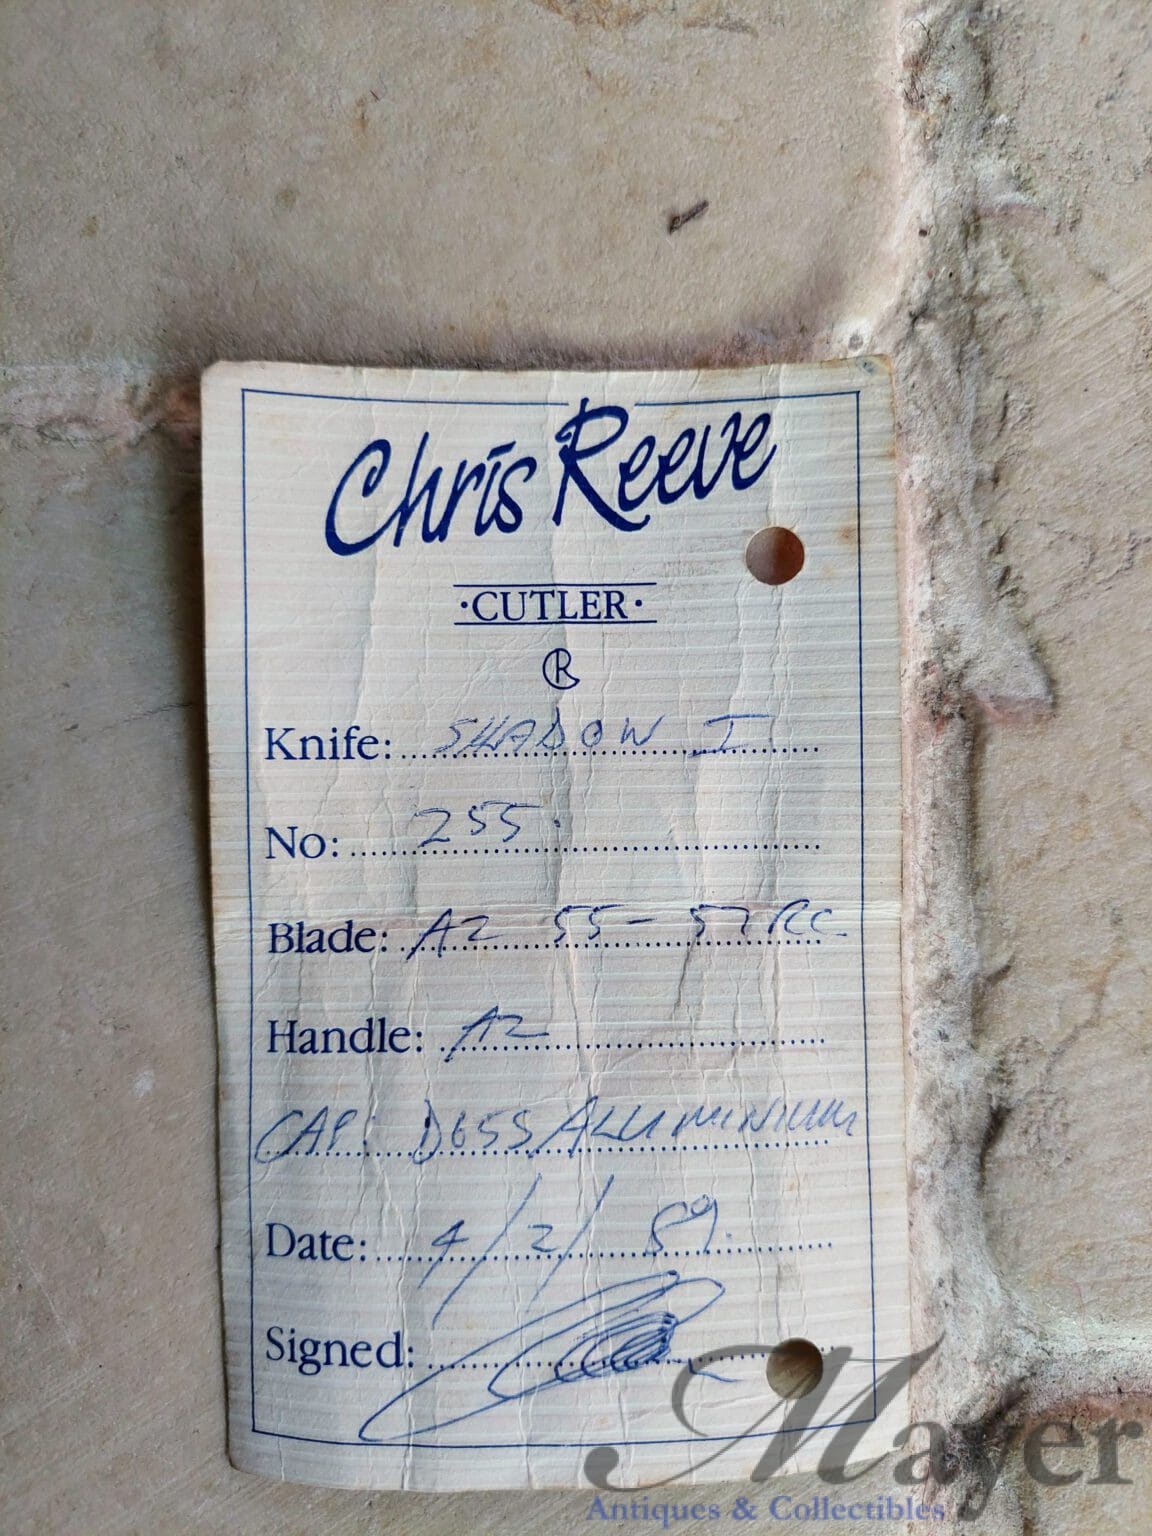 Chris Reeve
·CUTLER·
CR
Knife: SHADOW I
No: 255.
Blade: A2 55-57 RC
Handle: A2
CAP: D65S ALUMINIUM
Date: 4/2/89.
Signed:
Mayer
Antiques & Collectibles